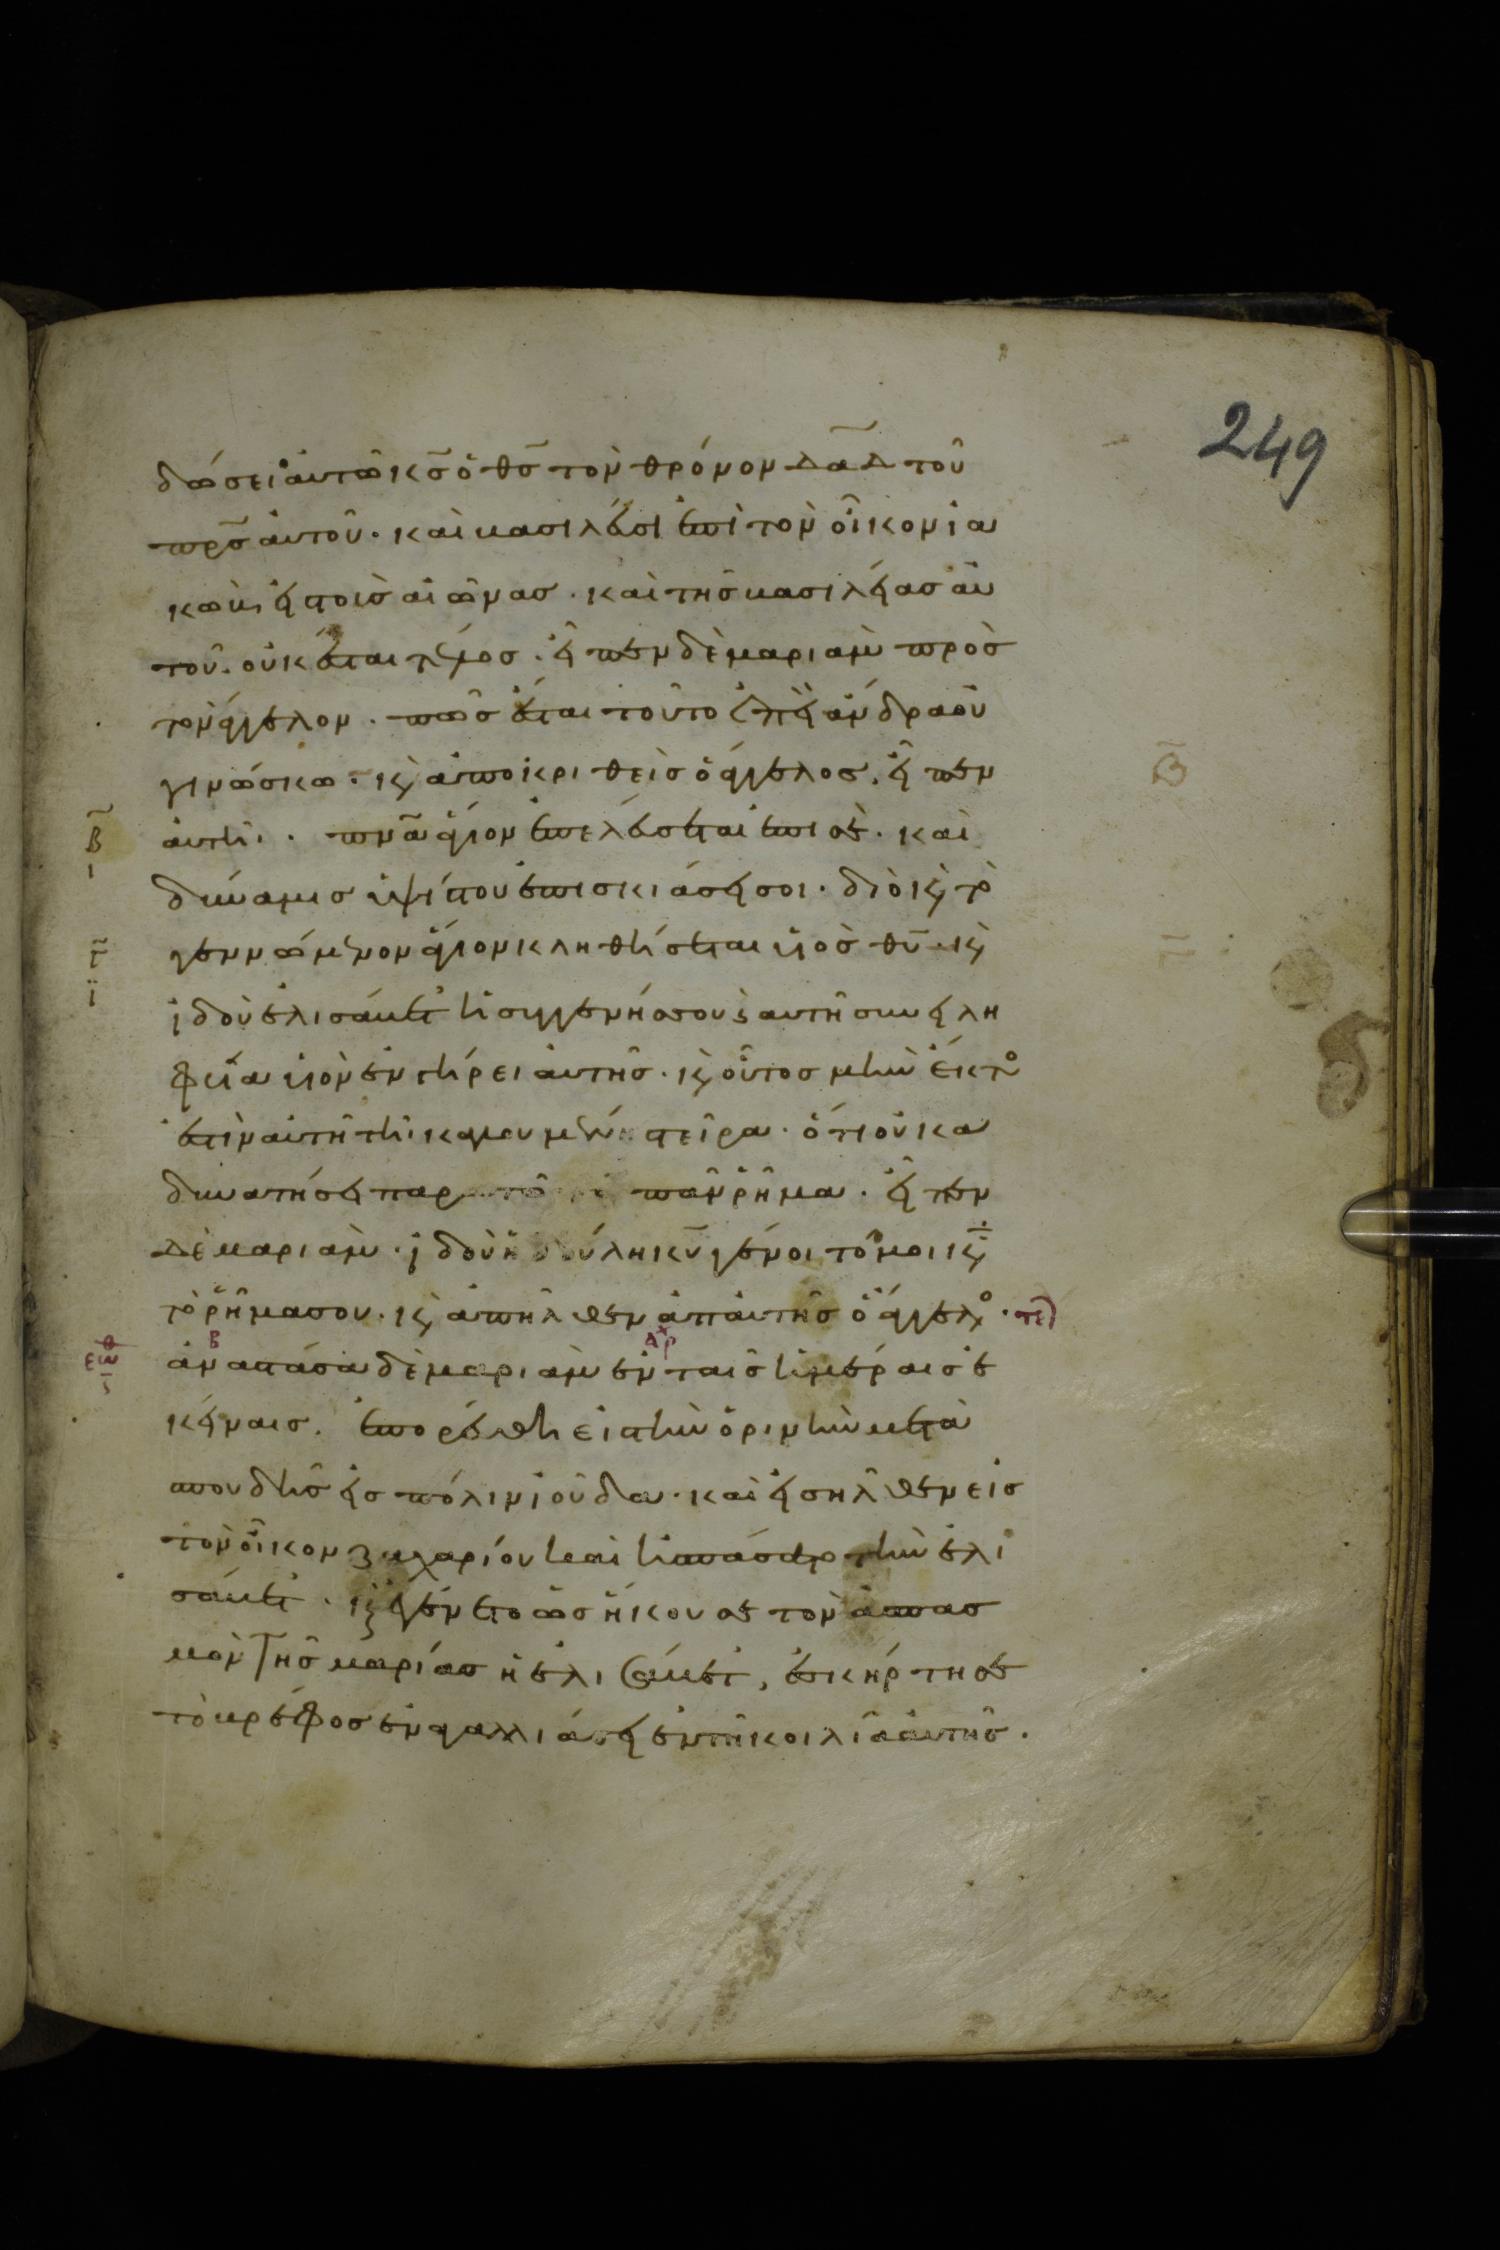 249
δώσει αὐτῶ κ̅σ̅ ὁ θ̅σ̅ τὸν θρόνον δ̅α̅δ̅ τοῦ
π̅ρ̅σ̅ αὐτοῦ· καὶ βασιλεύσει ἐπὶ τὸν οἶκον ἰα
κὼβ εἰς τοὺς αἰῶνας· καὶ τῆς βασιλείας αὐ
τοῦ οὐκ ἔσται τέλος· εἶπεν δὲ μαριὰμ πρὸς
τὸν ἄγγελον· πῶς ἔσται τοῦτο ἐπεὶ ἄνδρα οὐ
γινώσκω· κ(αὶ) ἀποκριθεὶς ὁ ἄγγελος, εἶπεν
β̅ αὐτῆ· π̅ν̅α̅ ἅγιον ἐπελεύσεται ἐπὶ σέ· καὶ
δύναμις ὑψίστου ἐπισκιάσει σοι· διὸ κ(αὶ) τὸ
γεννώμενον ἅγιον κληθήσεται υἱὸς θ̅υ̅· κ(αὶ)
ἰδοὺ ἐλισάβετ ἡ συγγενής σου κ(αὶ) αὐτὴ συνειλη
φυῖα υἱὸν ἐν γήρει αὐτῆς· κ(αὶ) οὗτος μὴν ἕκτο
ἐστὶν αὐτῆ τῆ καλουμένη στεῖρα· ὅτι οὐκ ἀ
δυνατήσει παρ τῶ πᾶν ῥῆμα· εἶπεν
δὲ μαριὰμ· ἰδοὺ ἡ δούλη κ̅υ̅ γένοιτό μοι κ(α)τ(ὰ)
τὸ ῥῆμα σου· κ(αὶ) ἀπῆλθεν ἀπ αὐτῆς ὁ ἄγγελο· τε
ἀναστᾶσα δὲ μαριὰμ ἐν ταῖς ἡμέραις ἐ
κείναις, ἐπορεύθη εἰς τὴν ὀρινὴν μετὰ
σπουδῆς εἰς πόλιν ἰούδα· καὶ εἰσῆλθεν εἰς
τὸν οἶκον ζαχαρίου καὶ ἠσπάσατο τὴν ἐλι
σάβετ· κ(αὶ) ἐγένετο ὡς ἤκουσε τὸν ἀσπασ
μὸν τῆς μαρίας ἡ ἐλισάβετ, ἐσκήρτησε
τὸ βρέφος ἐν ἀγαλλιάσει ἐν τῆ κοιλία αὐτῆς·